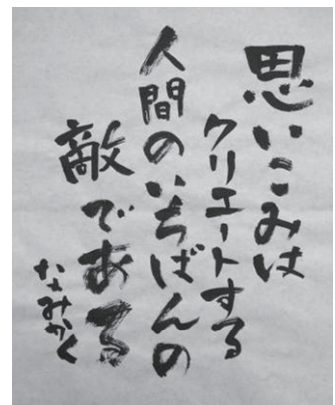 思いこみは
クリエートする
人間のいちばんの
敵である
なみかく